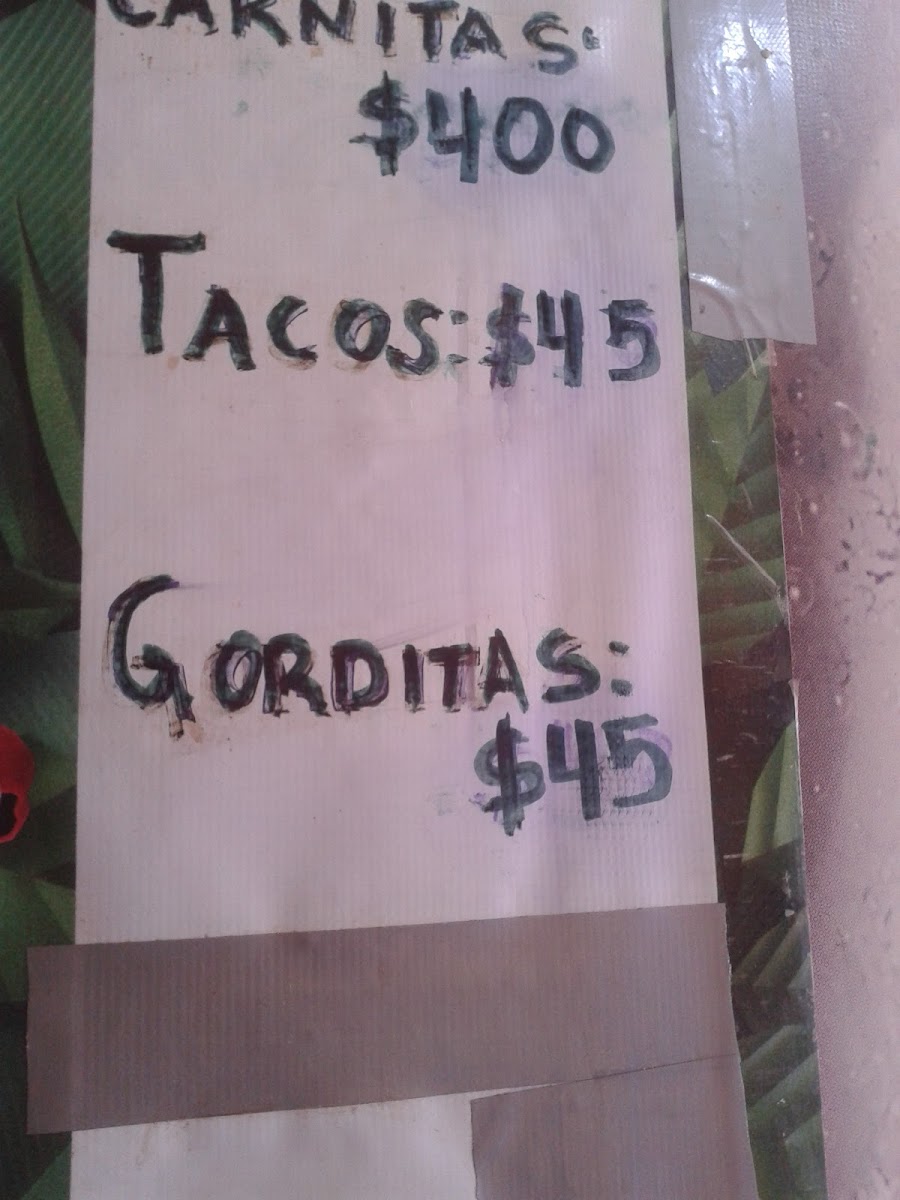 CARNITAS:
$400
TACOS: $45
GORDITAS:
$45